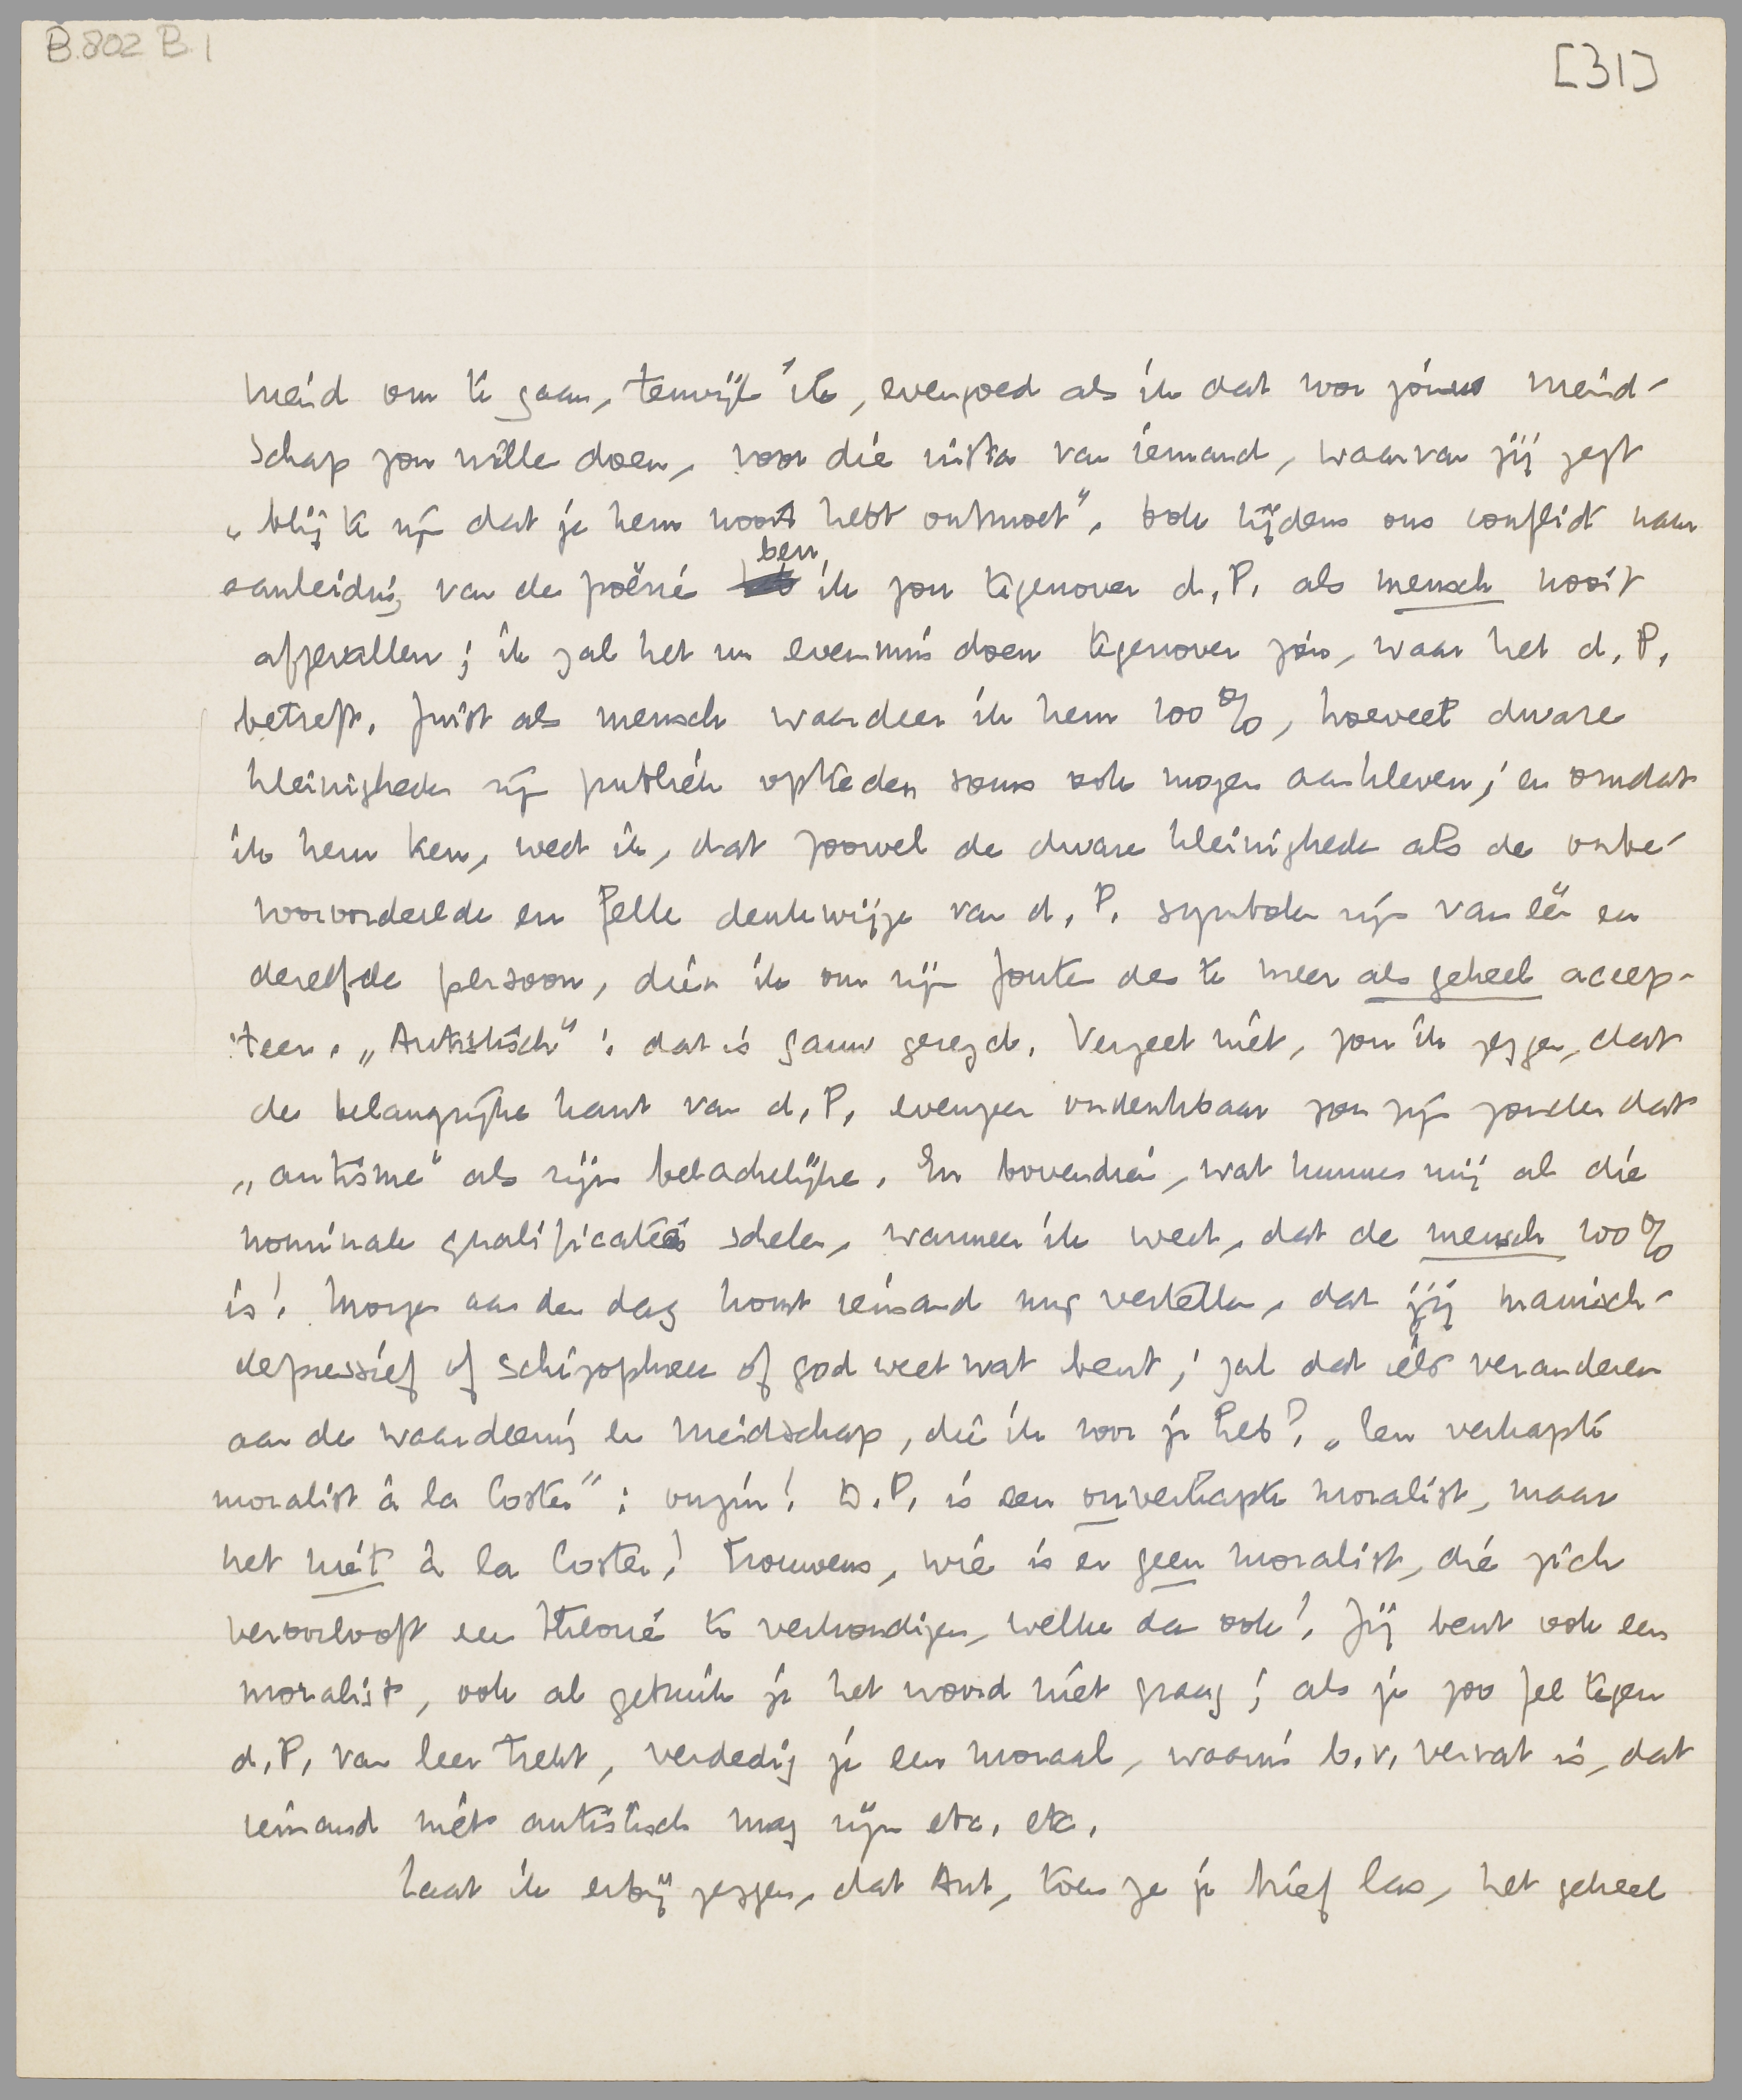 B.802 B.1
[31]
vriend om te gaan, terwijl ik, evengoed als ik dat voor jóuw vriend-
schap zou willen doen, voor die van iemand, waarvan jij zegt
„blij te zijn dat je hem nooit hebt ontmoet”. Ook tijdens ons conflict naar
aanleiding van de poëzie ben ik jou tegenover d. P. als mensch nooit
afgevallen; ik zal het nu evenmin doen tegenover jóu, waar het d. P.
betreft. Juist als mensch waardeer ik hem 100%, hoeveel dwaze
kleinigheden zijn publiek optreden soms ook mogen aankleven; en omdat
ik hem ken, weet ik, dat zoowel de dwaze kleinigheden als de onbe-
vooroordeelde en felle denkwijze van d. P. symbolen zijn van één en
dezelfde persoon, dien ik om zijn fouten des te meer als geheel accep-
teer. „Autistisch”: dat is gauw gezegd. Vergeet niet, zou ik zeggen, dat
de belangrijke kant van d. P. evenzeer ondenkbaar zou zijn zonder dat
„autisme” als zijn belachelijke. En bovendien, wat kunnen mij al die
nominale qualificaties schelen, wanneer ik weet, dat de mensch 100%
is! Morgen aan den dag komt iemand mij vertellen, dat jij manisch-
depressief of schizophreen of god weet wat bent; zal dat iets veranderen
aan de waardeering en vriendschap, die ik voor je heb? „Een verkapte
moralist à la Coster”: onzin! D. P. is een onverkapte moralist, maar
net niét à la Coster! Trouwens, wie is er geen moralist, die zich
veroorlooft een theorie te verkondigen, welke dan ook! Jij bent ook een
moralist, ook al gebruik je het woord niet graag; als je zoo fel tegen
d. P. van leer trekt, verdedig je een moraal, waarin b.v. vervat is, dat
iemand niet autistisch mag zijn etc. etc.
Laat ik erbij zeggen, dat Ant, toen ze je brief las, het geheel